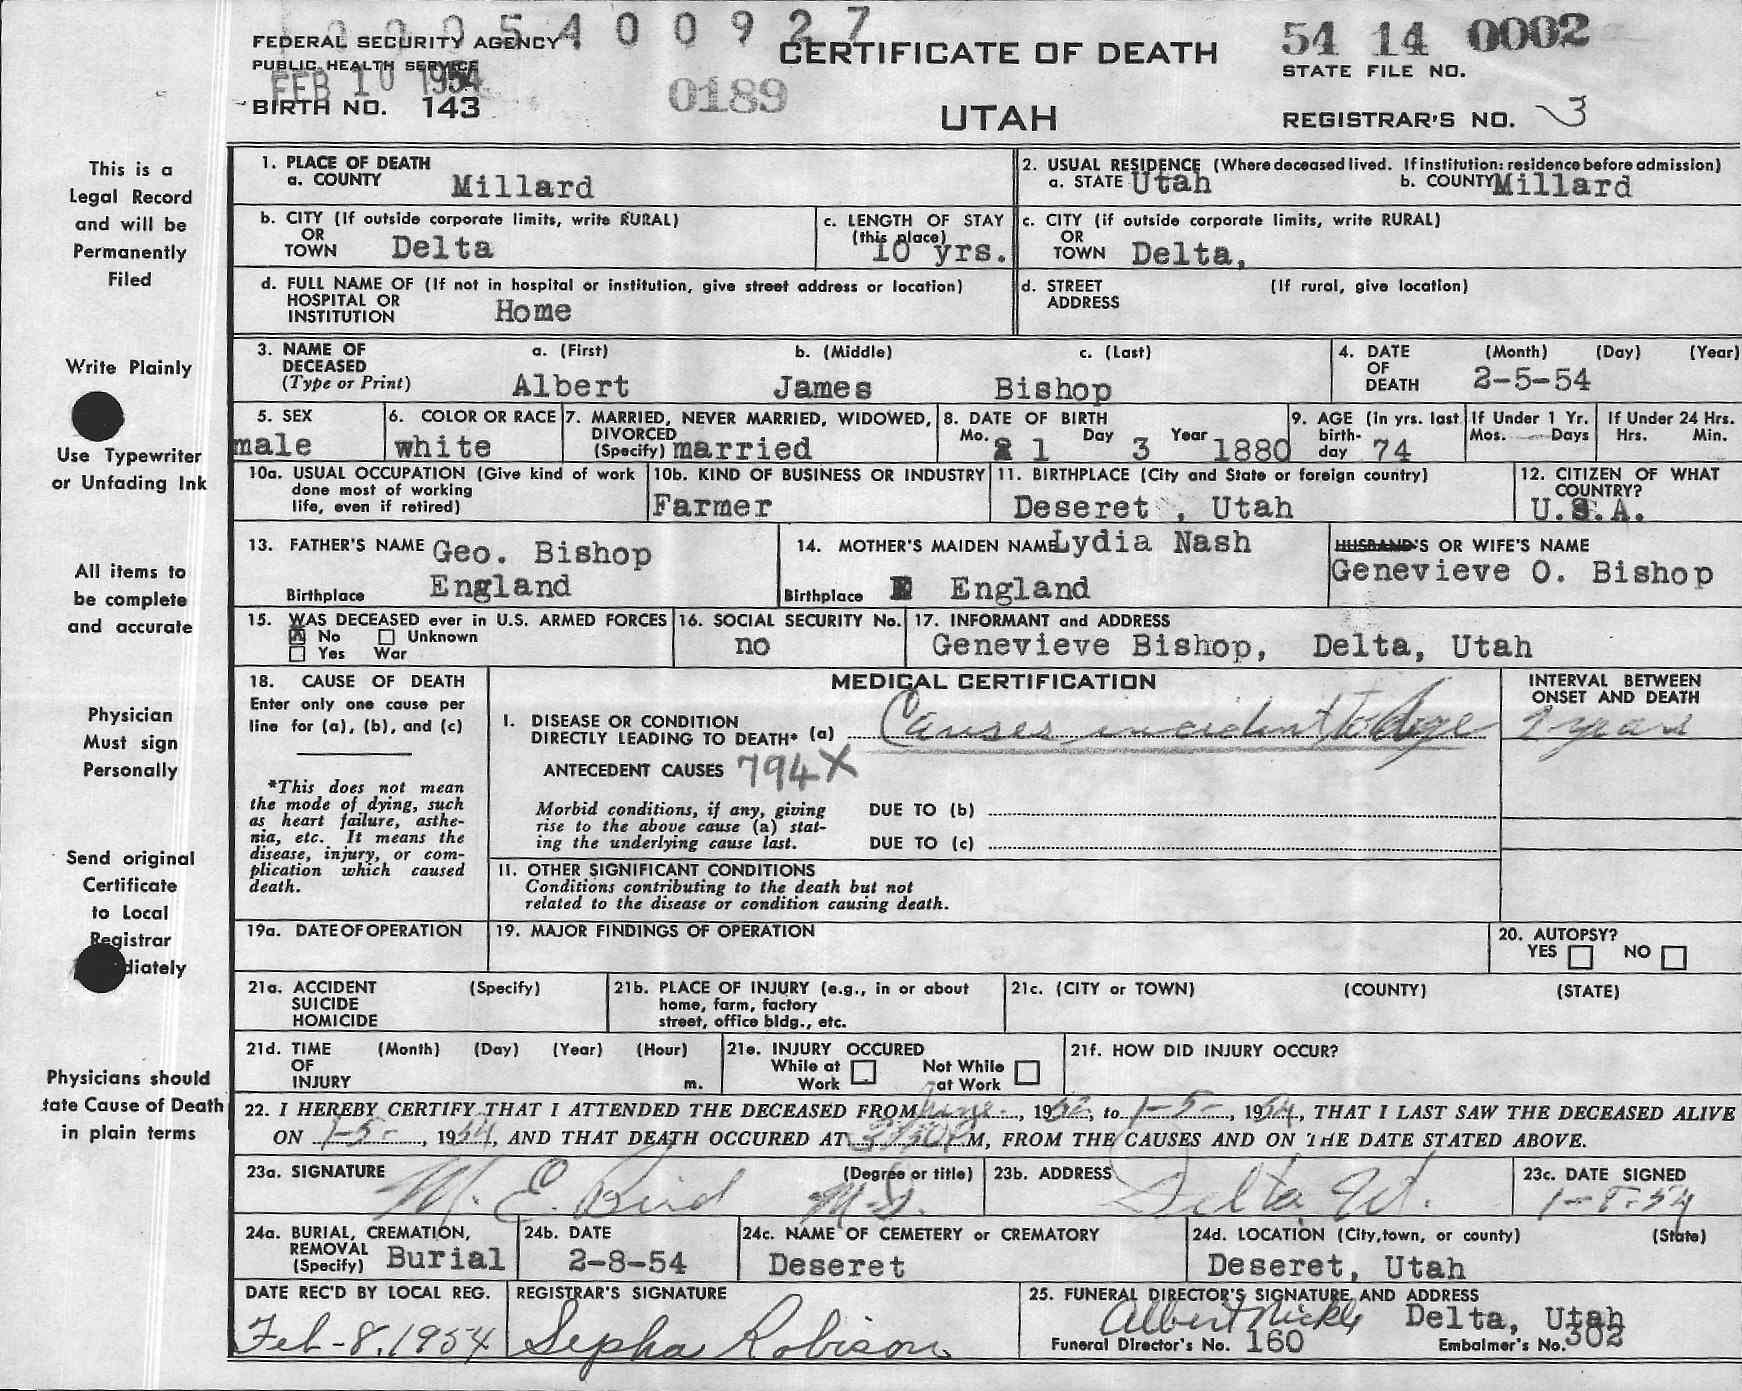 1 0 0 0 5 4 0 0 9 2 7
FEDERAL SECURITY AGENCY
PUBLIC HEALTH SERVICE
FEB 10 1954
BIRTH NO. 143
0189
CERTIFICATE OF DEATH
UTAH
54 14 0002
STATE FILE NO.
REGISTRAR'S NO. 3
This is a
Legal Record
and will be
Permanently
Filed
Write Plainly
Use Typewriter
or Unfading Ink
All items to
be complete
and accurate
Physician
Must sign
Personally
Send original
Certificate
to Local
Registrar
diately
Physicians should
tate Cause of Death
in plain terms
1. PLACE OF DEATH
a. COUNTY Millard
2. USUAL RESIDENCE (Where deceased lived. If institution: residence before admission)
a. STATE Utah b. COUNTY Millard
b. CITY (If outside corporate limits, write RURAL)
OR
TOWN Delta
c. LENGTH OF STAY
(this place)
10 yrs.
c. CITY (if outside corporate limits, write RURAL)
OR
TOWN Delta,
d. FULL NAME OF (If not in hospital or institution, give street address or location)
HOSPITAL OR
INSTITUTION Home
d. STREET (If rural, give location)
ADDRESS
3. NAME OF a. (First) b. (Middle) c. (Last)
DECEASED
(Type or Print) Albert James Bishop
4. DATE (Month) (Day) (Year)
OF
DEATH 2-5-54
5. SEX
male
6. COLOR OR RACE
white
7. MARRIED, NEVER MARRIED, WIDOWED,
DIVORCED
(Specify) married
8. DATE OF BIRTH
Mo. 1 Day 3 Year 1880
9. AGE (In yrs. last
birth-
day 74
If Under 1 Yr.
Mos. Days
If Under 24 Hrs.
Hrs. Min.
10a. USUAL OCCUPATION (Give kind of work
done most of working
life, even if retired)
10b. KIND OF BUSINESS OR INDUSTRY
Farmer
11. BIRTHPLACE (City and State or foreign country)
Deseret , Utah
12. CITIZEN OF WHAT
COUNTRY?
U.S.A.
13. FATHER'S NAME Geo. Bishop
Birthplace England
14. MOTHER'S MAIDEN NAME Lydia Nash
Birthplace England
HUSBAND'S OR WIFE'S NAME
Genevieve O. Bishop
15. WAS DECEASED ever in U.S. ARMED FORCES
No Unknown
Yes War
16. SOCIAL SECURITY No.
no
17. INFORMANT and ADDRESS
Genevieve Bishop, Delta, Utah
18. CAUSE OF DEATH
Enter only one cause per
line for (a), (b), and (c)
*This does not mean
the mode of dying, such
as heart failure, asthe-
nia, etc. It means the
disease, injury, or com-
plication which caused
death.
MEDICAL CERTIFICATION
INTERVAL BETWEEN
ONSET AND DEATH
I. DISEASE OR CONDITION
DIRECTLY LEADING TO DEATH* (a) Causes incident to Age 2 years
ANTECEDENT CAUSES 794X
Morbid conditions, if any, giving
rise to the above cause (a) stat-
ing the underlying cause last.
DUE TO (b)
DUE TO (c)
II. OTHER SIGNIFICANT CONDITIONS
Conditions contributing to the death but not
related to the disease or condition causing death.
19a. DATE OF OPERATION
19. MAJOR FINDINGS OF OPERATION
20. AUTOPSY?
YES NO
21a. ACCIDENT (Specify)
SUICIDE
HOMICIDE
21b. PLACE OF INJURY (e.g., in or about
home, farm, factory
street, office bldg., etc.
21c. (CITY or TOWN) (COUNTY) (STATE)
21d. TIME (Month) (Day) (Year) (Hour)
OF
INJURY m.
21e. INJURY OCCURED
While at Not While
Work at Work
21f. HOW DID INJURY OCCUR?
22. I HEREBY CERTIFY THAT I ATTENDED THE DECEASED FROM June, 1952, to 1-5-, 1954, THAT I LAST SAW THE DECEASED ALIVE
ON 1-5-, 1954, AND THAT DEATH OCCURED AT M, FROM THE CAUSES AND ON THE DATE STATED ABOVE.
23a. SIGNATURE (Degree or title)
M. E. Bird M.D.
23b. ADDRESS
Delta Ut.
23c. DATE SIGNED
1-8-54
24a. BURIAL, CREMATION,
REMOVAL
(Specify) Burial
24b. DATE
2-8-54
24c. NAME OF CEMETERY or CREMATORY
Deseret
24d. LOCATION (City, town, or county) (State)
Deseret, Utah
DATE REC'D BY LOCAL REG.
Feb-8, 1954
REGISTRAR'S SIGNATURE
Sepha Robison
25. FUNERAL DIRECTOR'S SIGNATURE AND ADDRESS
Albert Nickle Delta, Utah
Funeral Director's No. 160 Embalmer's No. 302